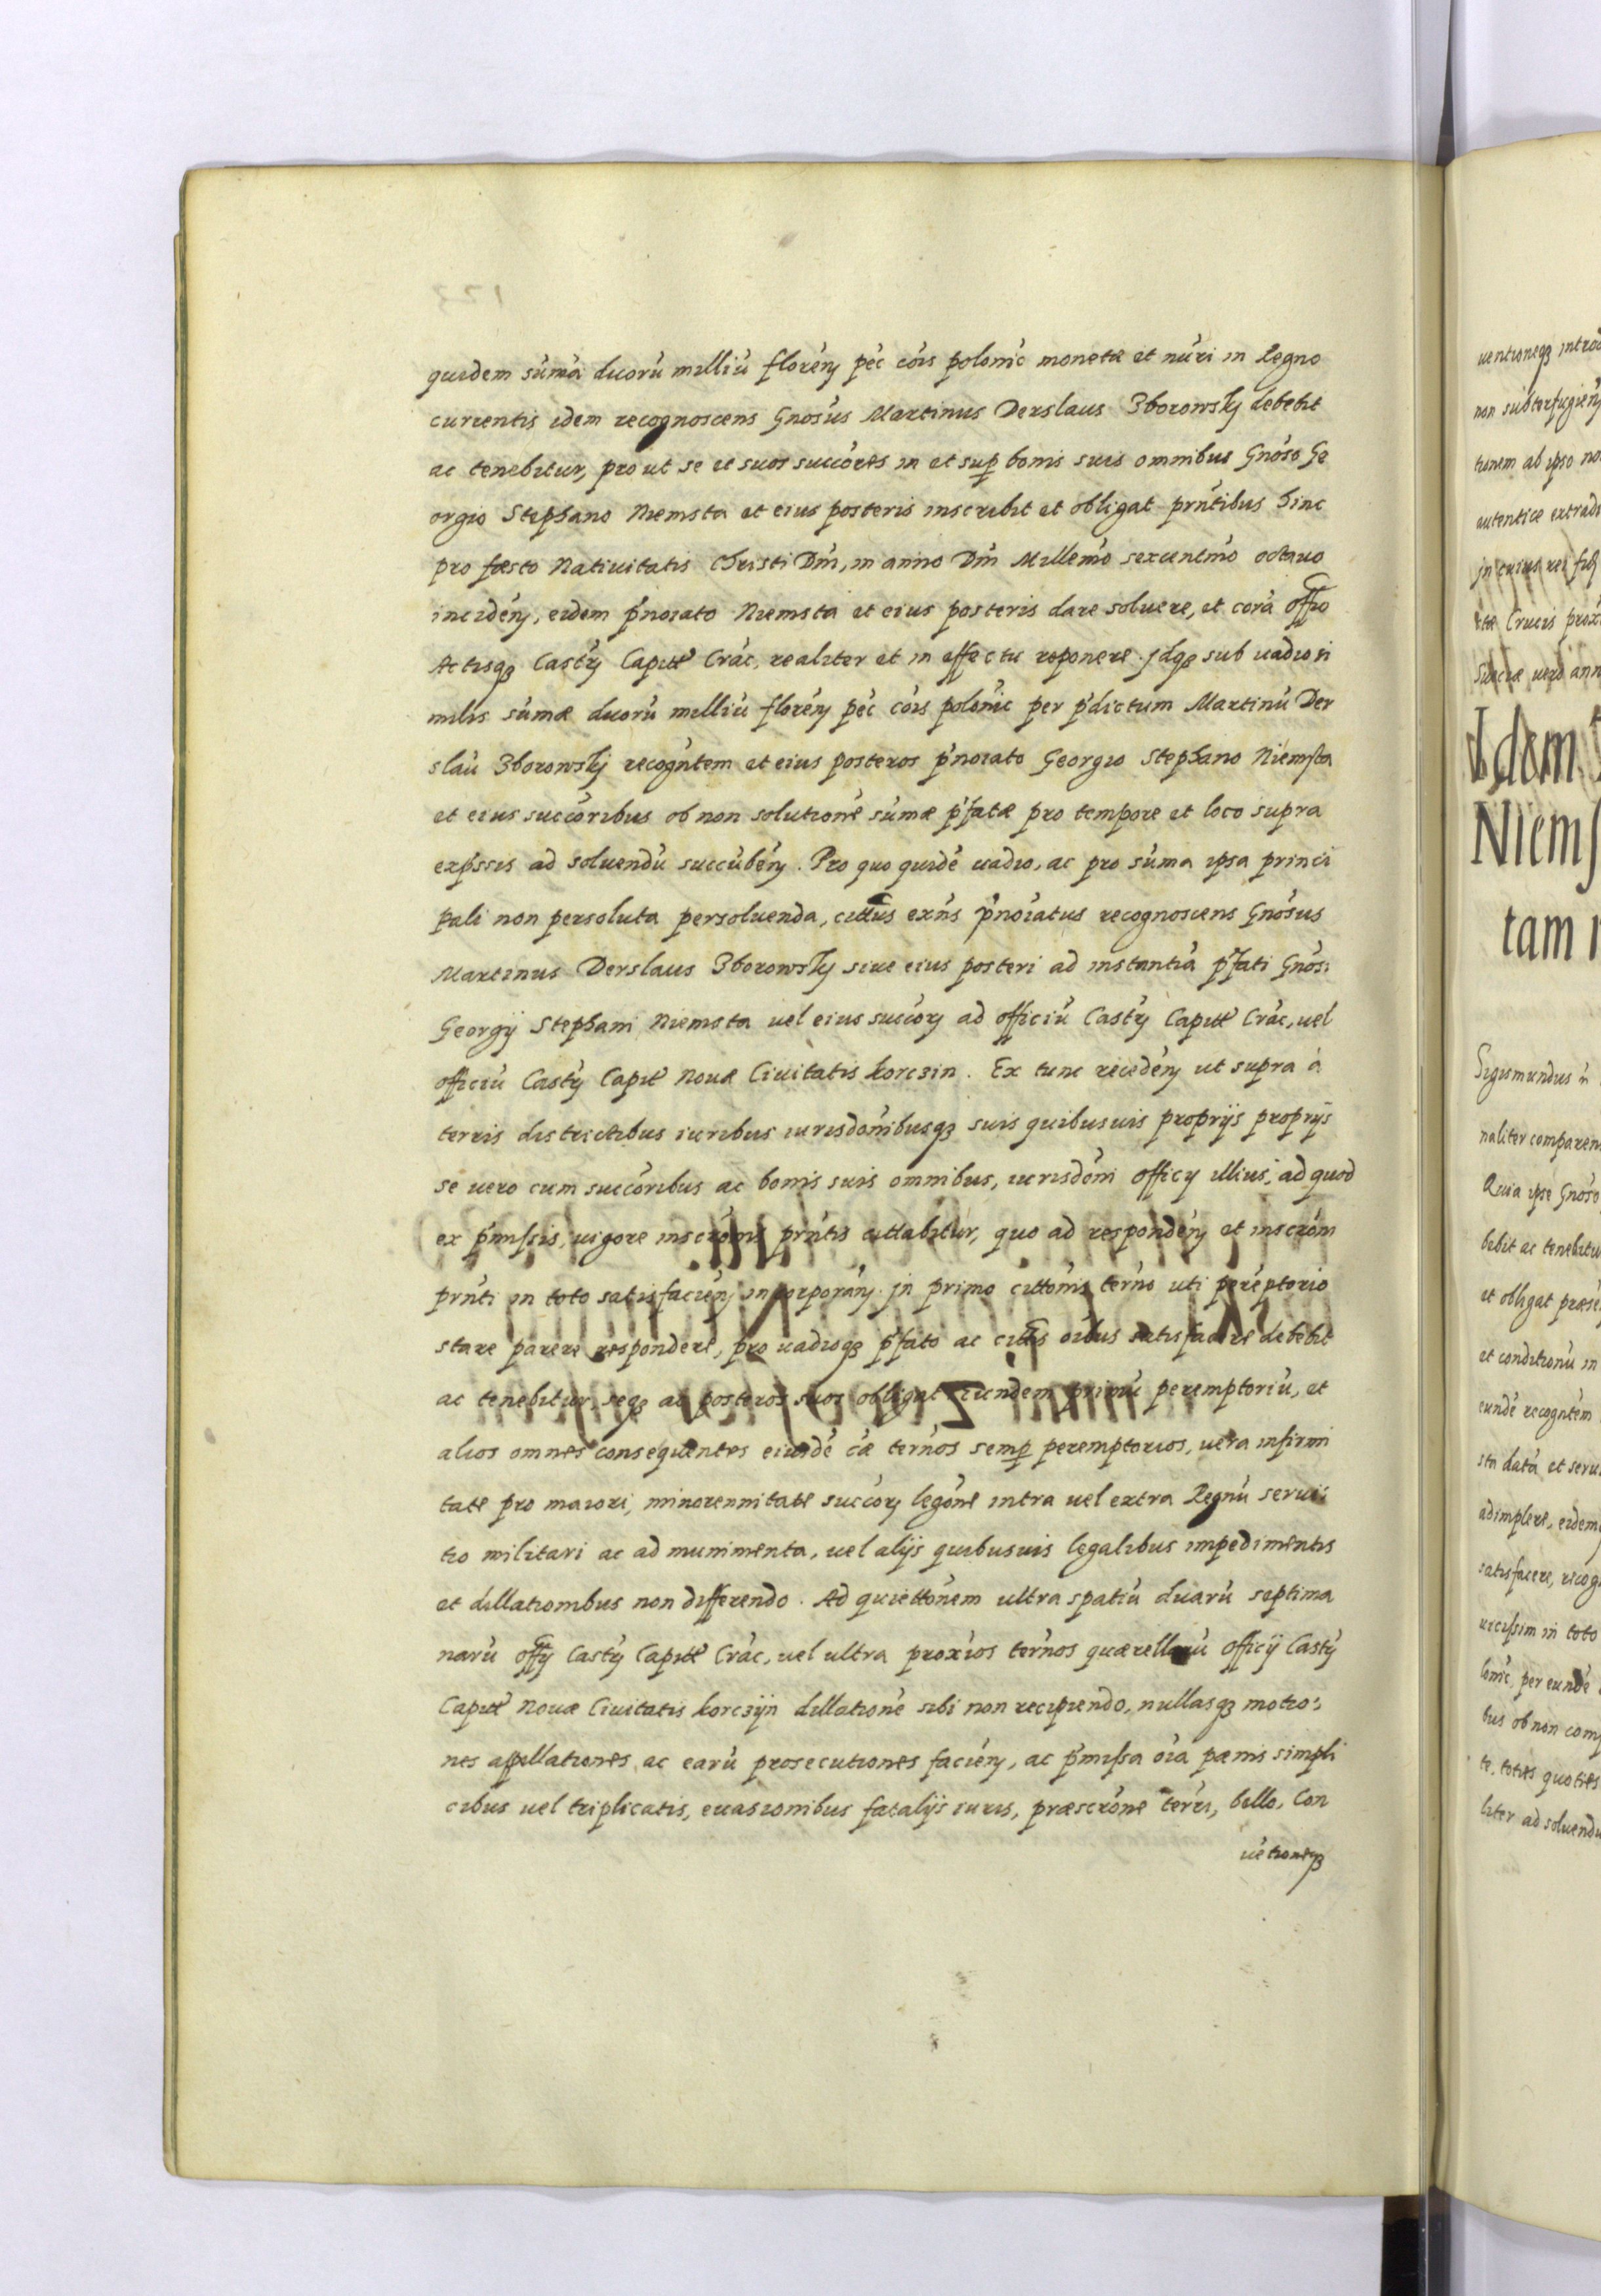 quidem sum̃a duorũ milliũ floreñ pec̃ cõis polonic̃ monetæ et nũri in Regno
currentis idem recognoscens Gnosũs Martinus Derslaus Zborowskӱ debebit
ac tenebitur, pro ut se et suos succõres in et sup̱ bonis suis omnibus Gnõso Ge
orgio Stephano Niemsta et eius posteris inscribit et obligat prñtibus hinc
pro fæsto Natiuitatis Christi Dñi, in anno Dñi Millemõ sexcentmõ octauo
incideñ, eidem p̃noiato Niemsta et eius posteris dare soluere, et corã offio
Actisqꝫ Castrẽ Capitł Crac̃, realiter et in effectu reponere. Jdqꝫ sub uadio si
milis sum̃æ duorũ milliũ floreñ pec̃ cõis polonic̃ per p̃dictum Martinũ Der
slaũ Zborowskӱ recogñtem et eius posteros p̃noiato Georgio Stephano Niemsta
et eius succõribus ob non solutionẽ sum̃æ p̃fatæ pro tempore et loco supra
exp̃ssis ad soluendũ succubeñ. Pro quo quidẽ uadio, ac pro sum̃a ipsa princi
pali non persoluta persoluenda, cittus exñs p̃noiatus recognoscens Gnosũs
Martinus Derslaus Zborowskӱ siue eius posteri ad instantiã p̃fati Gnõsi
Georgij Stephani Niemsta uel eius succorꝝ ad officiũ Castrẽ Capitł Crac̃, uel
officiũ Castrẽ Capitł Nouæ Ciuitatis korczin. Ex tunc recedeñ ut supra à
terris districtibus iuribus iurisdõnibusqꝫ suis quibusuis proprijs proprijs
se uero cum succõribus ac bonis suis omnibus, iurisdõni officij illius, ad quod
ex p̃missis, uigore inscrõnis prñtis cittabitur, quo ad respondeñ et inscrõni
prñti in toto satisfacieñ incorporañ. Jn primo cittõnis termõ uti perẽptorio
stare parere respondere, pro uadioqꝫ p̃fato ac cittis oĩbus satisfacere debebit
ac tenebitur, seqꝫ ac posteros suos obligat eundem primũ peremptoriũ, et
alios omnes consequentes eiusdẽ cæ̃ termõs semp̱ peremptorios, uera infirmi
tate pro maiori, minorennitate succorꝝ legõne intra uel extra Regnũ serui
tio militari ac ad munimenta, uel alijs quibusuis legalibus impedimentis
et dillationibus non differendo. Ad quiettõnem ultra spatiũ duarũ septima
narũ offij Castrẽ Capitł Crac̃, uel ultra proxĩos termõs quærellarũ officij Castrẽ
Capitł Nouæ Ciuitatis korczijn dillationẽ sibi non recipiendo, nullasqꝫ motio:
nes appellationes, ac earũ prosecutiones facieñ, ac p̃missa oĩa pæmis simpli
cibus uel triplicatis, euasionibus fatalijs iuris, præscrõne terri, bello, Con
uẽtioneqꝫ
uentioneqꝫ
non subterfugieñ
tionem ab ipso
autentice
Jn cuius rei
Crucis
uero
Idem
Niems
tam
Sigismundus
naliter
Quia ipse Gnoso
bebit ac tenebitur
et obligat
et conditionũ in
eundẽ recogñtem
sta datã et
adimplere, eidem
satisfacere,
uicissim in toto
lonic̃, per eundẽ
bus ob non
te, toties quoties
liter ad soluendũ